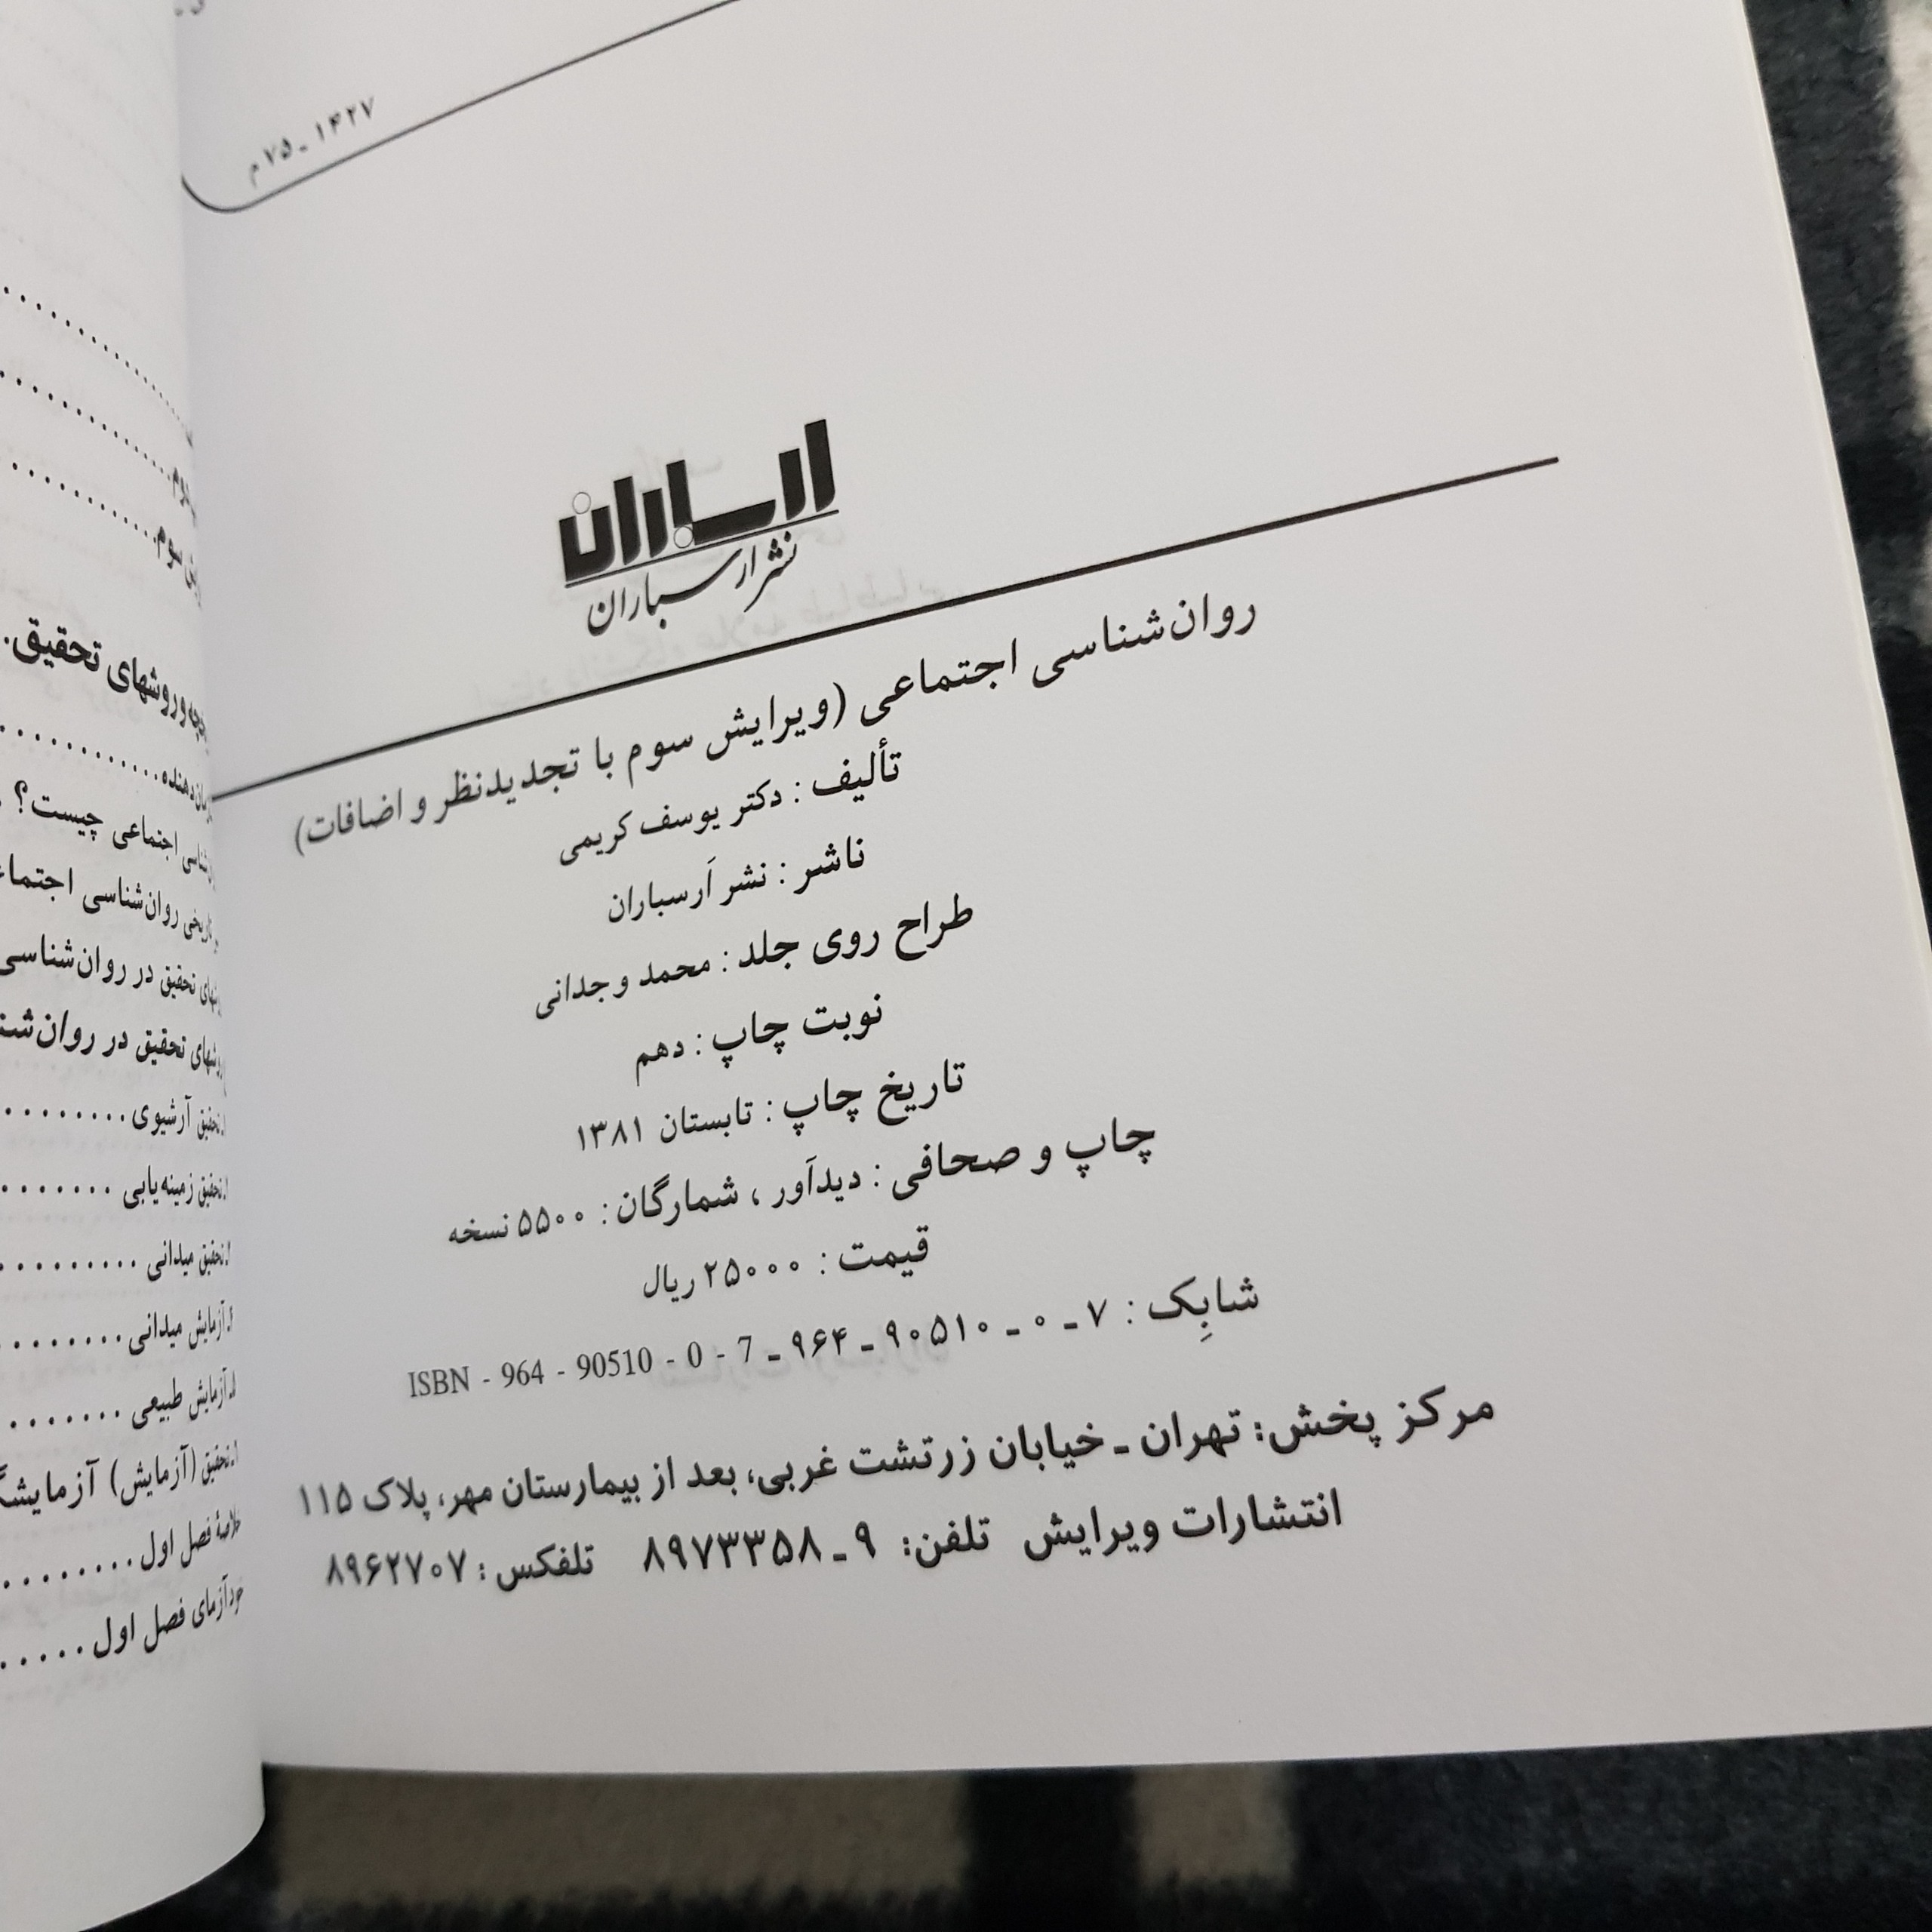 ۱۴۲۷ ـ ۷۵م
ارسباران
نشر ارسباران
روان‌شناسی اجتماعی (ویرایش سوم با تجدیدنظر و اضافات)
تألیف : دکتر یوسف کریمی
ناشر : نشر اَرسباران
طراح روی جلد : محمد وجدانی
نوبت چاپ : دهم
تاریخ چاپ : تابستان ۱۳۸۱
چاپ و صحافی : دیدآور ، شمارگان : ۵۵۰۰ نسخه
قیمت : ۲۵۰۰۰ ریال
شابِک : ۷ ـ ۰ ـ ۹۰۵۱۰ ـ ۹۶۴ ـ ISBN - 964 - 90510 - 0 - 7
مرکز پخش: تهران ـ خیابان زرتشت غربی، بعد از بیمارستان مهر، پلاک ۱۱۵
انتشارات ویرایش تلفن: ۹ ـ ۸۹۷۳۳۵۸ تلفکس : ۸۹۶۲۷۰۷
سوم
وروشهای تحقیق
اجتماعی چیست؟
تاریخی روان‌شناسی
تحقیق در روان‌شناسی
تحقیق در
تحقیق آرشیوی
تحقیق زمینه‌یابی
تحقیق میدانی
آزمایش میدانی
آزمایش طبیعی
تحقیق (آزمایش)
خلاصهٔ فصل اول
خودآزمای فصل اول